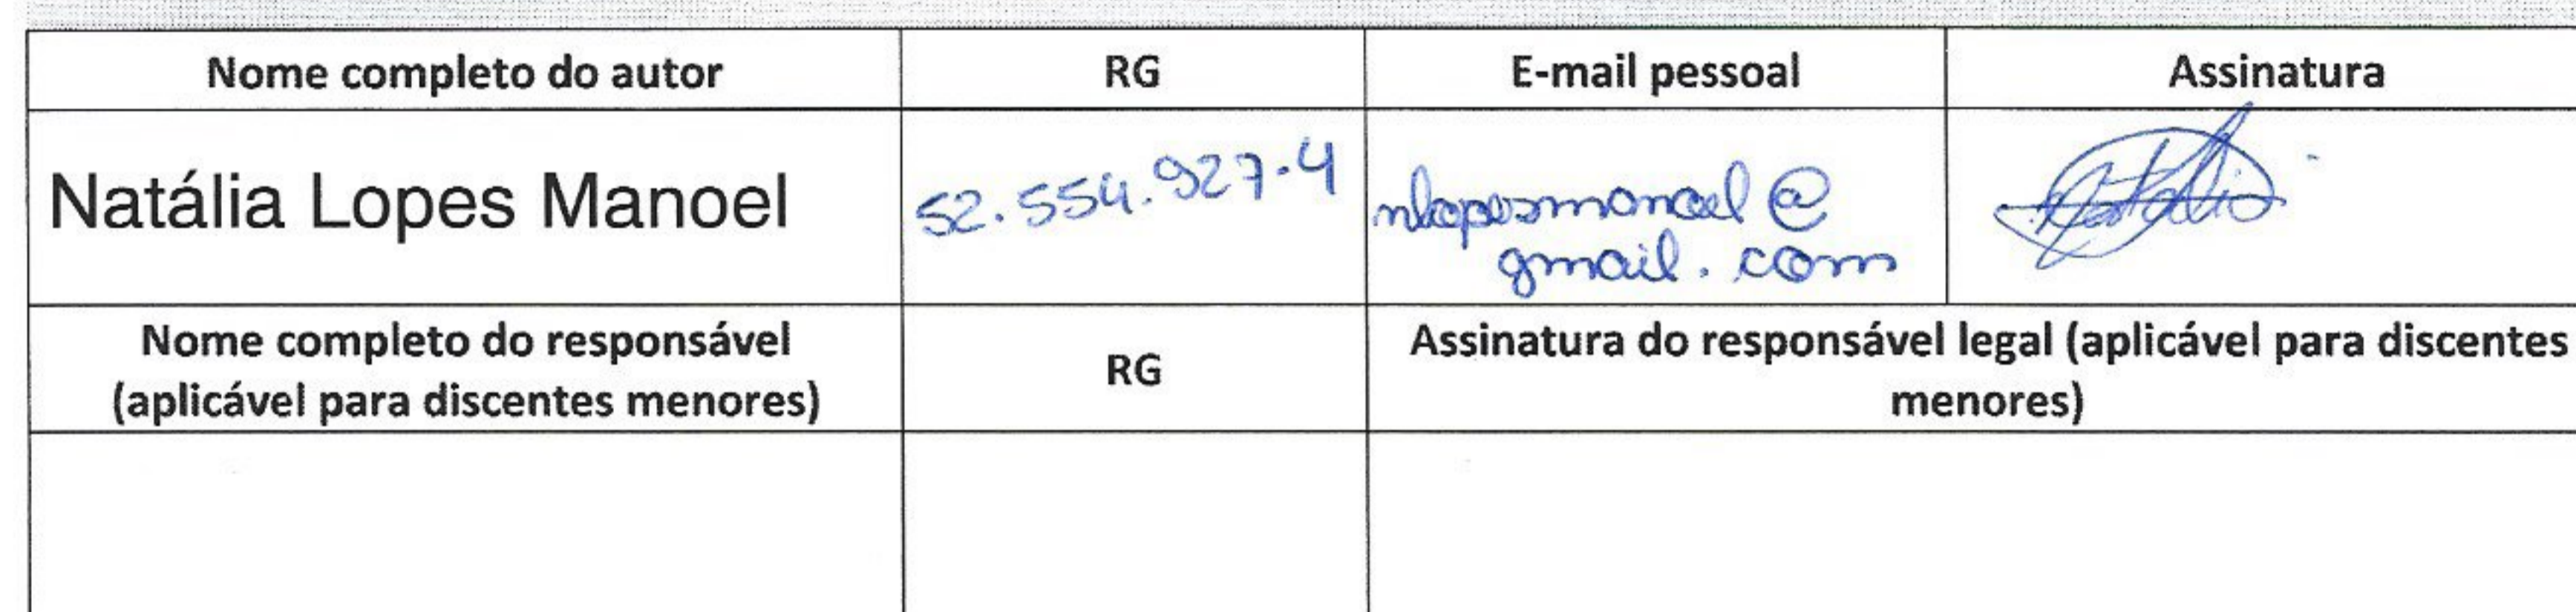 Nome completo do autor RG E-mail pessoal Assinatura
Natália Lopes Manoel 52.554.927-4 nlopesmanoel@
gmail.com
Natália
Nome completo do responsável
(aplicável para discentes menores)
RG
Assinatura do responsável legal (aplicável para discentes
menores)